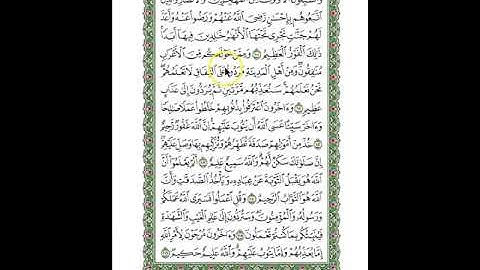 ٱتَّبَعُوهُم بِإِحْسَٰنٍ رَّضِىَ ٱللَّهُ عَنْهُمْ وَرَضُوا۟ عَنْهُ وَأَعَدَّ
لَهُمْ جَنَّٰتٍ تَجْرِى تَحْتَهَا ٱلْأَنْهَٰرُ خَٰلِدِينَ فِيهَآ أَبَدًا
ذَٰلِكَ ٱلْفَوْزُ ٱلْعَظِيمُ ١٠٠ وَمِمَّنْ حَوْلَكُم مِّنَ ٱلْأَعْرَابِ
مُنَٰفِقُونَ وَمِنْ أَهْلِ ٱلْمَدِينَةِ مَرَدُوا۟ عَلَى ٱلنِّفَاقِ لَا تَعْلَمُهُمْ
نَحْنُ نَعْلَمُهُمْ سَنُعَذِّبُهُم مَّرَّتَيْنِ ثُمَّ يُرَدُّونَ إِلَىٰ عَذَابٍ
عَظِيمٍ ١٠١ وَءَاخَرُونَ ٱعْتَرَفُوا۟ بِذُنُوبِهِمْ خَلَطُوا۟ عَمَلًا صَٰلِحًا
وَءَاخَرَ سَيِّئًا عَسَى ٱللَّهُ أَن يَتُوبَ عَلَيْهِمْ إِنَّ ٱللَّهَ غَفُورٌ رَّحِيمٌ
١٠٢ خُذْ مِنْ أَمْوَٰلِهِمْ صَدَقَةً تُطَهِّرُهُمْ وَتُزَكِّيهِم بِهَا وَصَلِّ عَلَيْهِمْ
إِنَّ صَلَوٰتَكَ سَكَنٌ لَّهُمْ وَٱللَّهُ سَمِيعٌ عَلِيمٌ ١٠٣ أَلَمْ يَعْلَمُوٓا۟ أَنَّ
ٱللَّهَ هُوَ يَقْبَلُ ٱلتَّوْبَةَ عَنْ عِبَادِهِۦ وَيَأْخُذُ ٱلصَّدَقَٰتِ وَأَنَّ
ٱللَّهَ هُوَ ٱلتَّوَّابُ ٱلرَّحِيمُ ١٠٤ وَقُلِ ٱعْمَلُوا۟ فَسَيَرَى ٱللَّهُ عَمَلَكُمْ
وَرَسُولُهُۥ وَٱلْمُؤْمِنُونَ وَسَتُرَدُّونَ إِلَىٰ عَٰلِمِ ٱلْغَيْبِ وَٱلشَّهَٰدَةِ
فَيُنَبِّئُكُم بِمَا كُنتُمْ تَعْمَلُونَ ١٠٥ وَءَاخَرُونَ مُرْجَوْنَ لِأَمْرِ ٱللَّهِ
إِمَّا يُعَذِّبُهُمْ وَإِمَّا يَتُوبُ عَلَيْهِمْ وَٱللَّهُ عَلِيمٌ حَكِيمٌ ١٠٦